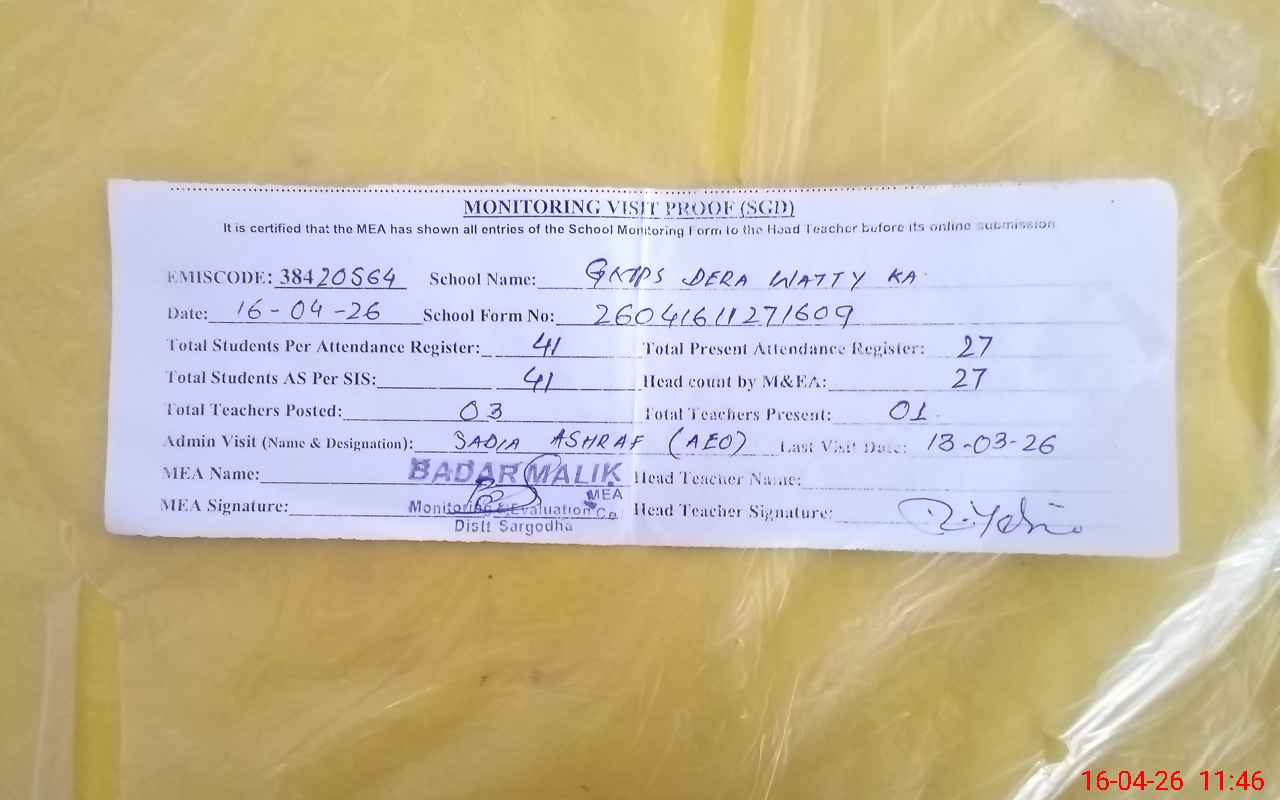 MONITORING VISIT PROOF (SGD)
It is certified that the MEA has shown all entries of the School Monitoring Form to the Head Teacher before its online submission
EMISCODE: 38420564 School Name: GMPS DERA WATTY KA
Date: 16-04-26 School Form No: 26041611271609
Total Students Per Attendance Register: 41 Total Present Attendance Register: 27
Total Students AS Per SIS: 41 Head count by M&EA: 27
Total Teachers Posted: 03 Total Teachers Present: 01
Admin Visit (Name & Designation): SADIA ASHRAF (AEO) Last Visit Date: 13-03-26
MEA Name: BADAR MALIK Head Teacher Name:
MEA
MEA Signature: Monitoring & Evaluation Co Head Teacher Signature:
Distt Sargodha
16-04-26 11:46